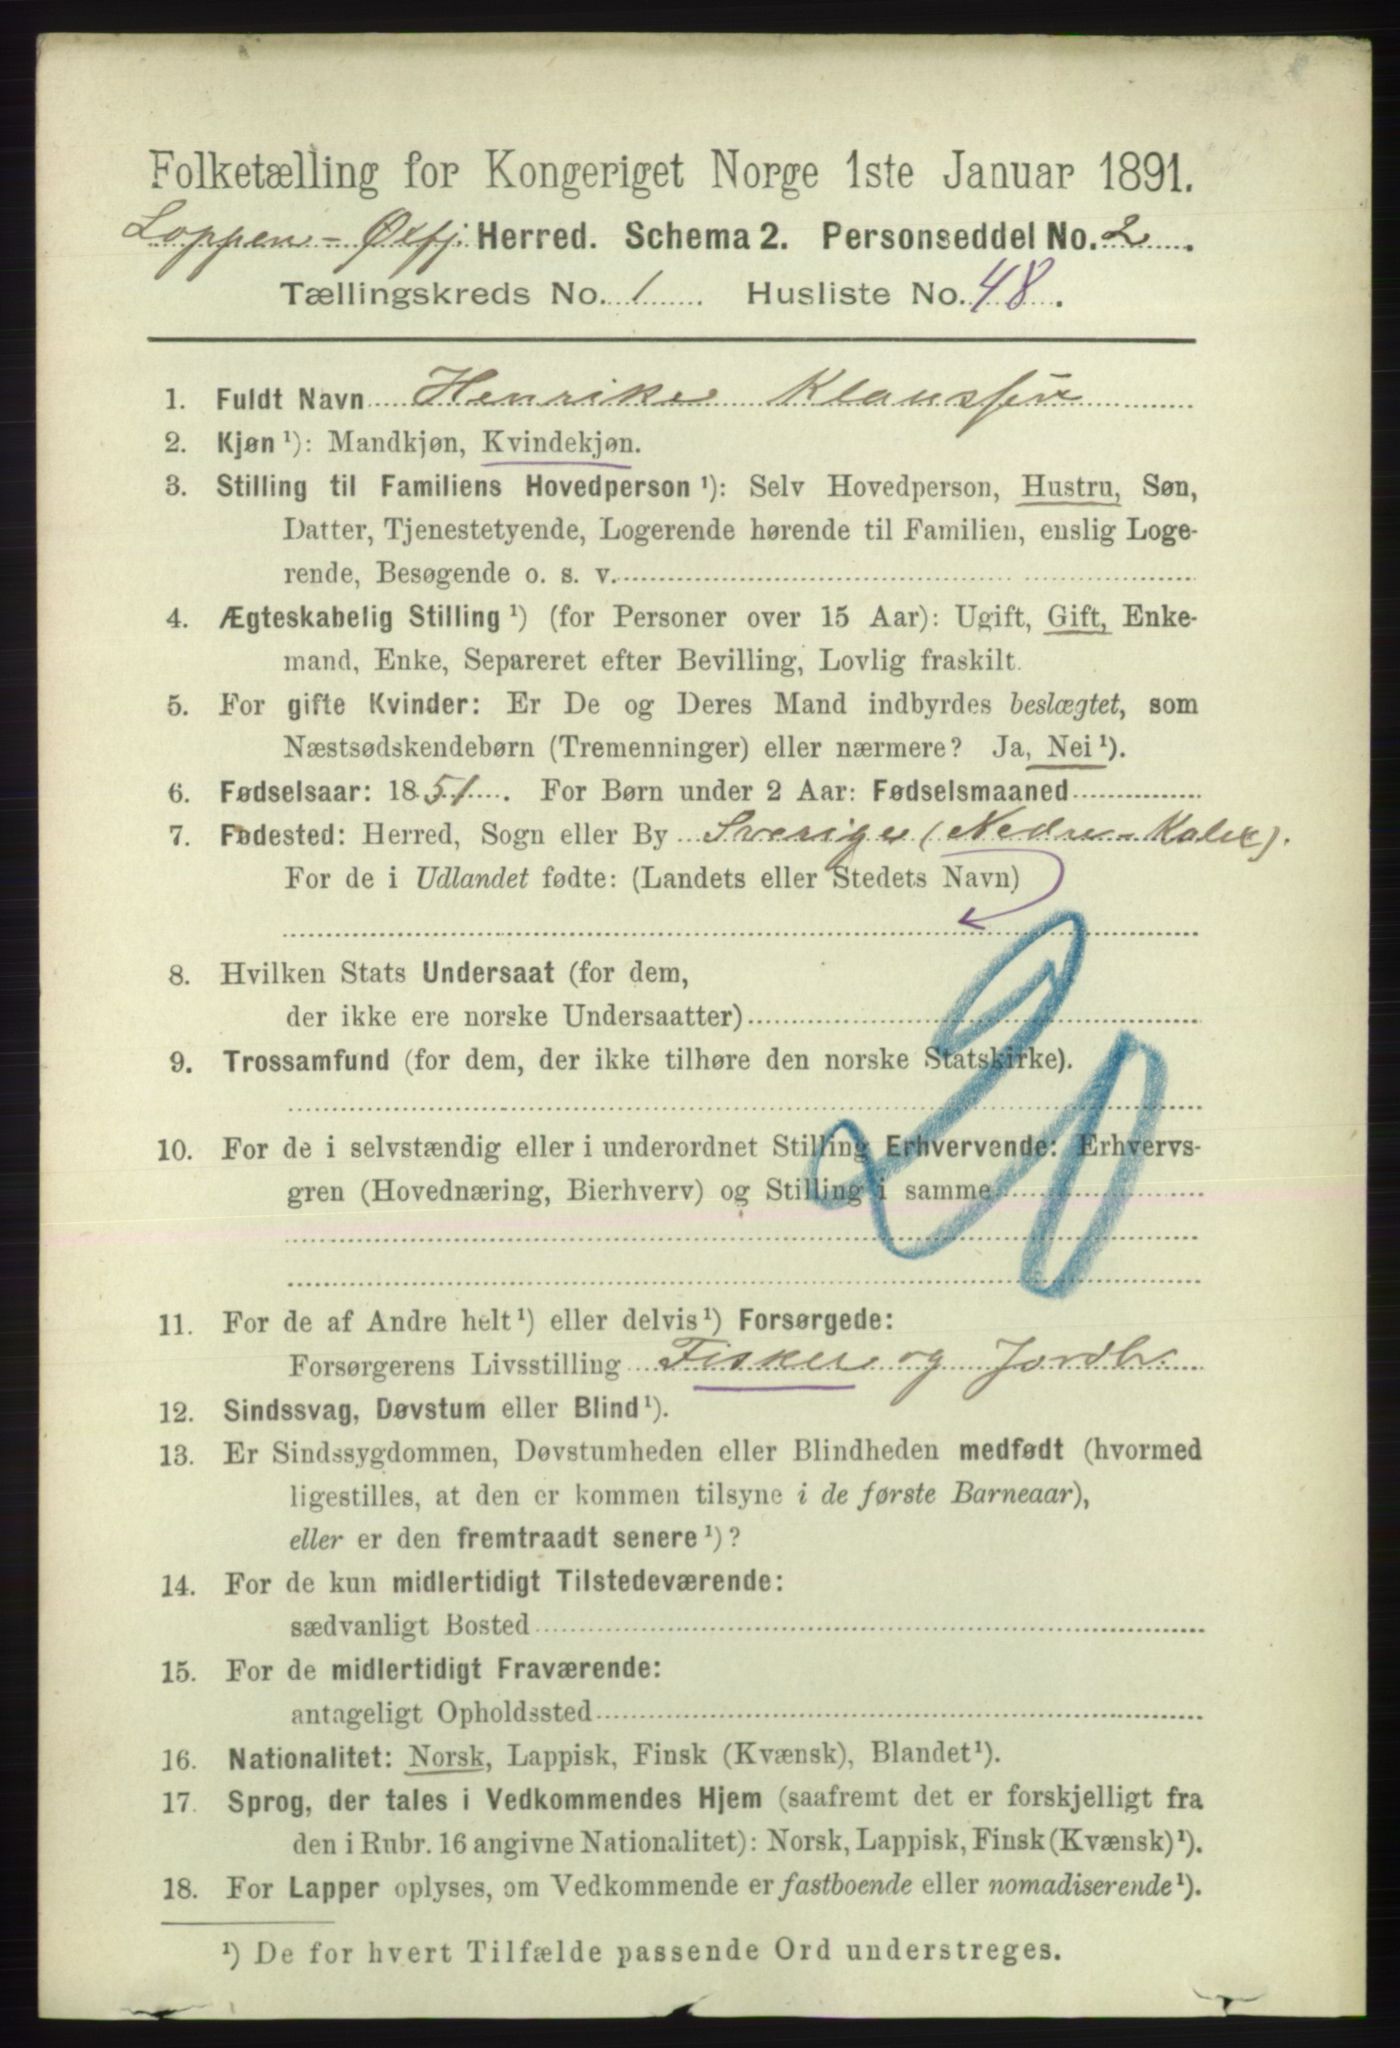 Folketælling for Kongeriget Norge 1ste Januar 1891.
Loppen - Øxfj. Herred. Schema 2. Personseddel No. 2.
Tællingskreds No. 1 Husliste No. 48.
1. Fuldt Navn Henrike Klaussen
2. Kjøn ¹): Mandkjøn, Kvindekjøn.
3. Stilling til Familiens Hovedperson ¹): Selv Hovedperson, Hustru, Søn,
Datter, Tjenestetyende, Logerende hørende til Familien, enslig Loge-
rende, Besøgende o. s. v.
4. Ægteskabelig Stilling ¹) (for Personer over 15 Aar): Ugift, Gift, Enke-
mand, Enke, Separeret efter Bevilling, Lovlig fraskilt.
5. For gifte Kvinder: Er De og Deres Mand indbyrdes beslægtet, som
Næstsødskendebørn (Tremenninger) eller nærmere? Ja, Nei ¹).
6. Fødselsaar: 1851. For Børn under 2 Aar: Fødselsmaaned
7. Fødested: Herred, Sogn eller By Sverige (Nedre-Kalix).
For de i Udlandet fødte: (Landets eller Stedets Navn)
8. Hvilken Stats Undersaat (for dem,
der ikke ere norske Undersaatter)
9. Trossamfund (for dem, der ikke tilhøre den norske Statskirke).
10. For de i selvstændig eller i underordnet Stilling Erhvervende: Erhvervs-
gren (Hovednæring, Bierhverv) og Stilling i samme
11. For de af Andre helt ¹) eller delvis ¹) Forsørgede:
Forsørgerens Livsstilling Fisker og Jordbr.
12. Sindssvag, Døvstum eller Blind ¹).
13. Er Sindssygdommen, Døvstumheden eller Blindheden medfødt (hvormed
ligestilles, at den er kommen tilsyne i de første Barneaar),
eller er den fremtraadt senere ¹)?
14. For de kun midlertidigt Tilstedeværende:
sædvanligt Bosted
15. For de midlertidigt Fraværende:
antageligt Opholdssted
16. Nationalitet: Norsk, Lappisk, Finsk (Kvænsk), Blandet ¹).
17. Sprog, der tales i Vedkommendes Hjem (saafremt det er forskjelligt fra
den i Rubr. 16 angivne Nationalitet): Norsk, Lappisk, Finsk (Kvænsk) ¹).
18. For Lapper oplyses, om Vedkommende er fastboende eller nomadiserende ¹).
¹) De for hvert Tilfælde passende Ord understreges.